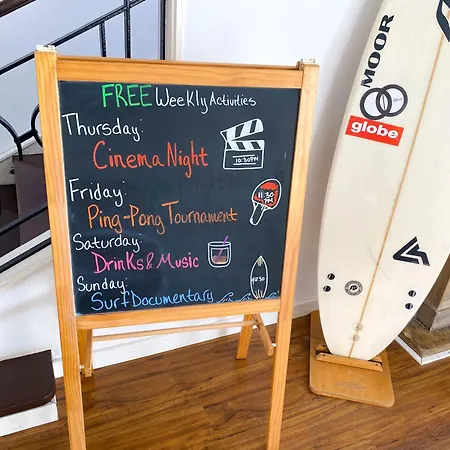 FREE Weekly Activities
Thursday:
Cinema Night
10:30PM
Friday:
Ping-Pong Tournament
11:30
PM
Saturday:
Drinks & Music
Sunday:
Surf Documentary
MOOR
globe